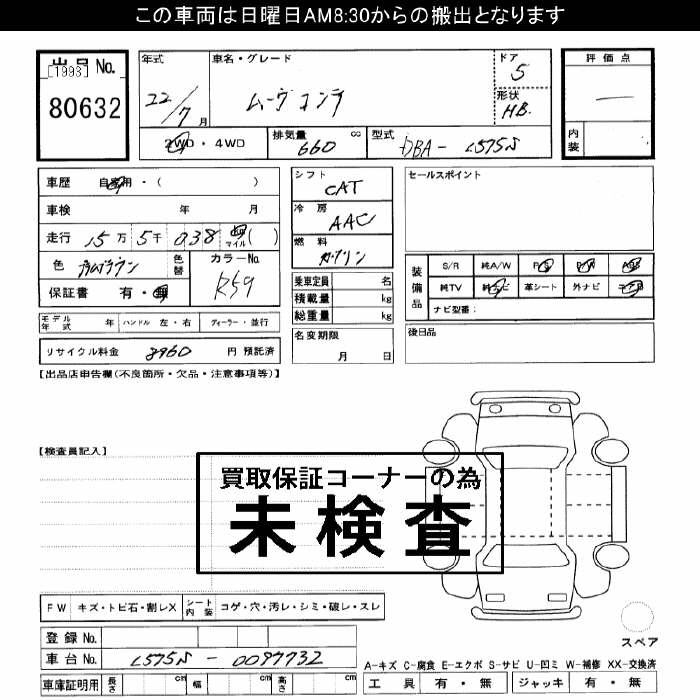 この車両は日曜日AM8:30からの搬出となります
出品No.
[1993]
80632
年式
22/7月
車名・グレード
ムーヴコンテ
ドア
5
形状
HB
評価点
—
内装
2WD・4WD
排気量
660 cc
型式
DBA-L575S
車歴 自家用・( )
車検 年 月
走行 15万 5千 038 マイル( )
色
色替
カラーNo
R59
保証書 有・無
シフト
CAT
冷房
AAC
燃料
ガソリン
乗車定員 名
積載量 kg
総重量 kg
名変期限
月 日
セールスポイント
装備品
S/R 純A/W P/S P/W A/B
純TV 純ナビ 革シート 外ナビ
ナビ型番:
後日品
モデル年式 年 ハンドル 左・右 ディーラー・並行
リサイクル料金 8960 円 預託済
【出品店申告欄(不良箇所・欠品・注意事項等)】
【検査員記入】
買取保証コーナーの為
未検査
FW キズ・トビ石・割レX シート内装 コゲ・穴・汚レ・シミ・破レ・スレ
登録No.
車台No. L575S-0097732
車庫証明用 長さ cm 幅 cm 高さ cm
スペア
A-キズ C-腐食 E-エクボ S-サビ U-凹ミ W-補修 XX-交換済
工具 有・無 ジャッキ 有・無